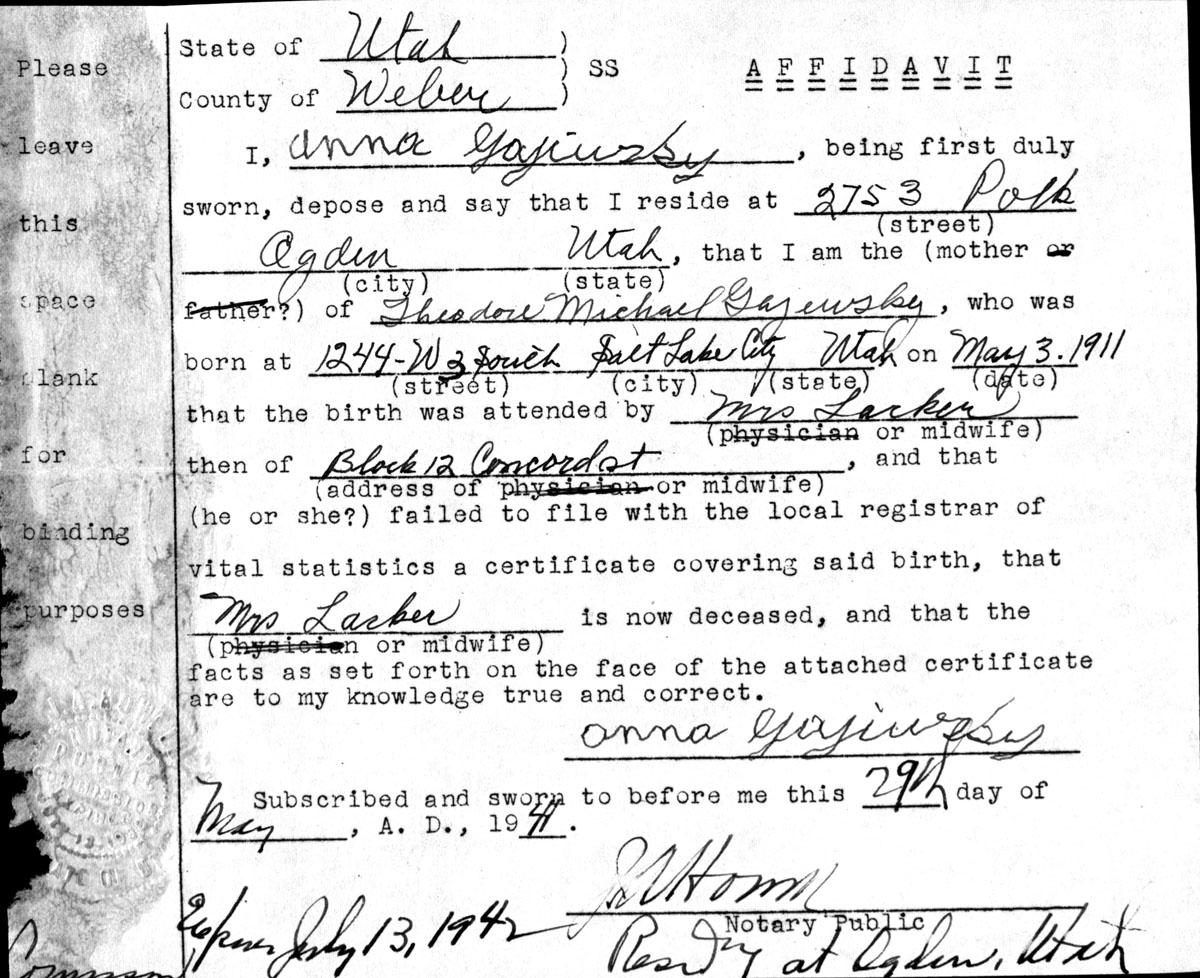 State of Utah )
) SS
County of Weber )
A F F I D A V I T
I, Anna Gajiewsky, being first duly
sworn, depose and say that I reside at 2753 Polk
(street)
Ogden Utah, that I am the (mother or
(city) (state)
father?) of Theodore Michael Gajewsky, who was
born at 1244-W 3 South Salt Lake City Utah on May 3. 1911
(street) (city) (state) (date)
that the birth was attended by Mrs Larker
(physician or midwife)
then of Block 12 Concord st, and that
(address of physician or midwife)
(he or she?) failed to file with the local registrar of
vital statistics a certificate covering said birth, that
Mrs Larker is now deceased, and that the
(physician or midwife)
facts as set forth on the face of the attached certificate
are to my knowledge true and correct.
Anna Gajiewsky
Subscribed and sworn to before me this 29th day of
May, A. D., 1941.
Notary Public
Expires July 13, 1942
at Ogden, Utah
Please
leave
this
space
blank
for
binding
purposes